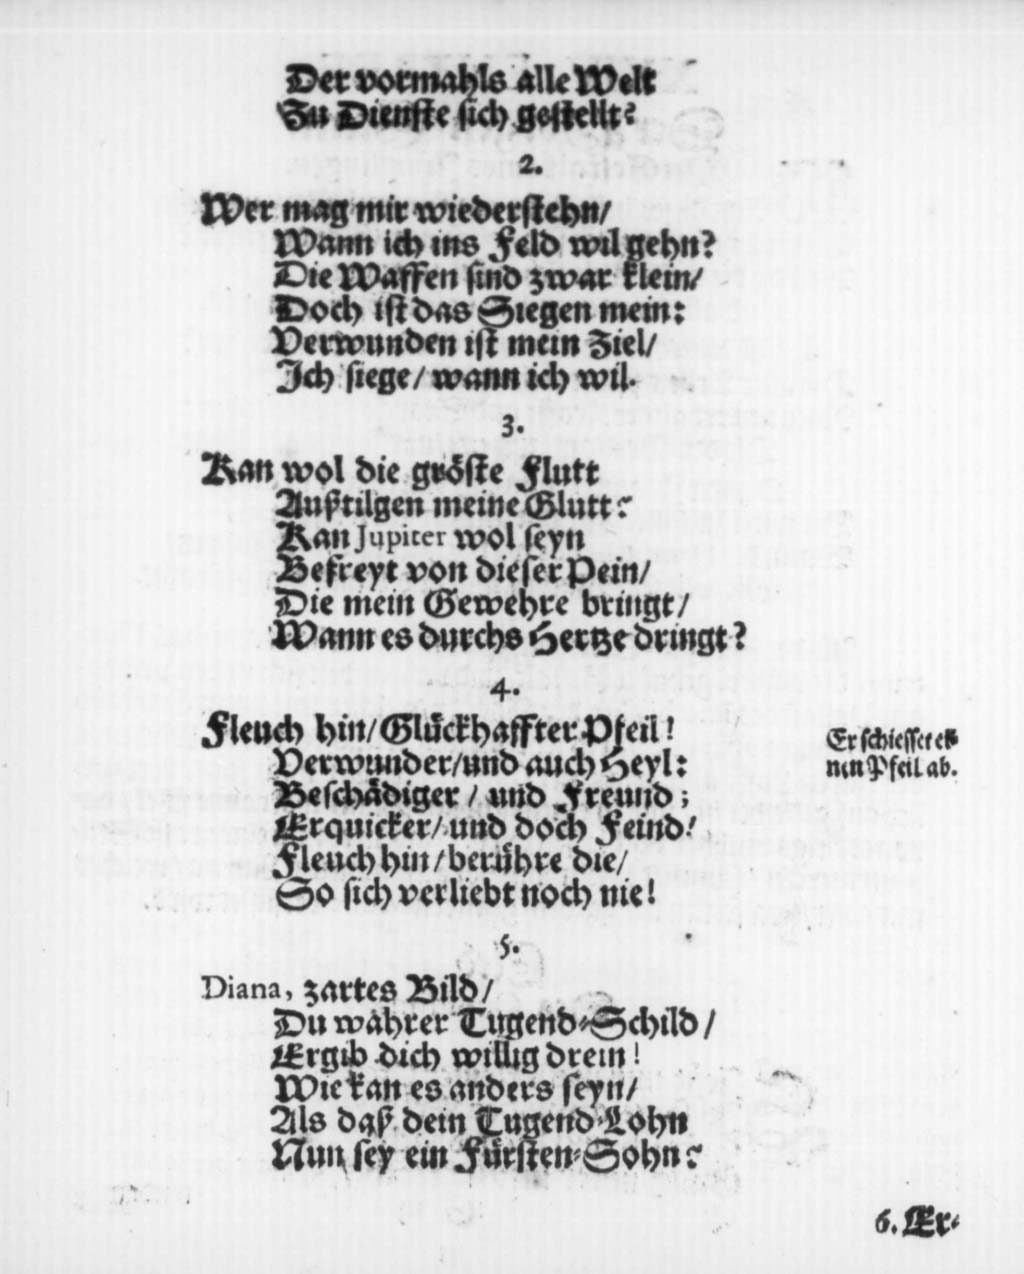 Der vormahls alle Welt
Zu Dienste sich gestellt?
2.
Wer mag mir wiederstehn/
Wann ich ins Feld wil gehn?
Die Waffen sind zwar klein/
Doch ist das Siegen mein:
Verwunden ist mein Ziel/
Ich siege/ wann ich wil.
3.
Kan wol die gröste Flutt
Außtilgen meine Glutt?
Kan Jupiter wol seyn
Befreyt von dieser Pein/
Die mein Gewehre bringt/
Wann es durchs Hertze dringt?
4.
Fleuch hin/ Glückhaffter Pfeil!
Verwunder/und auch Heyl:
Beschädiger/ und Freund;
Erquicker/ und doch Feind!
Fleuch hin/berühre die/
So sich verliebt noch nie!
Er schiesset ei-
nen Pfeil ab.
5.
Diana, zartes Bild/
Du wahrer Tugend-Schild/
Ergib dich willig drein!
Wie kan es anders seyn/
Als daß dein Tugend-Lohn
Nun sey ein Fürsten-Sohn?
6. Er-